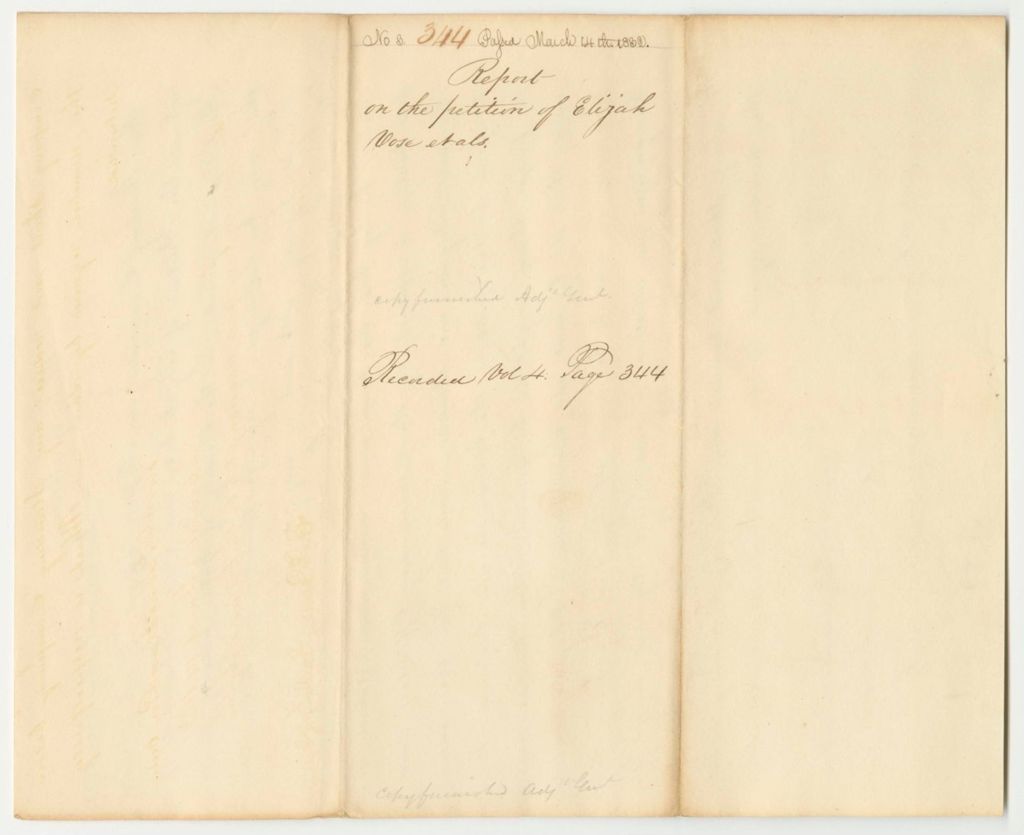 No 3. 344 Passed March 14th 1832.
Report
on the petition of Elijah
Vose et als.
copy furnished Adjt Genl.
Recorded Vol 4. Page 344
copy furnished Adjt Genl